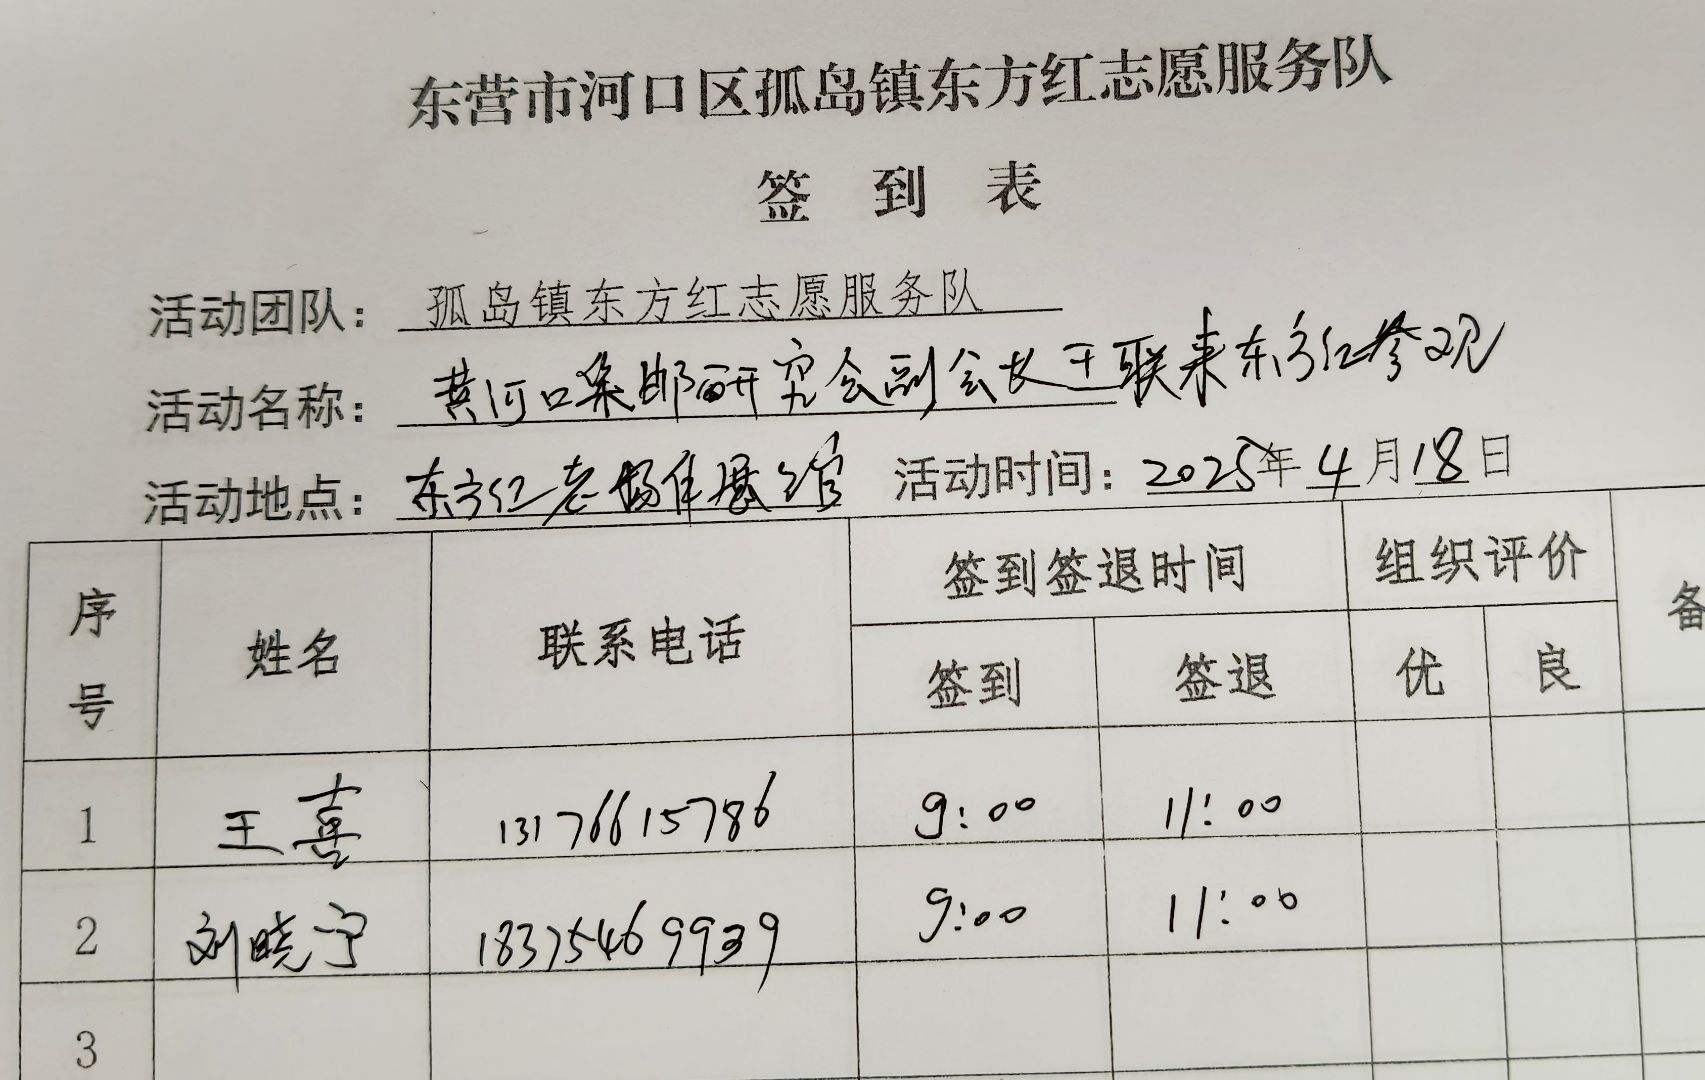 东营市河口区孤岛镇东方红志愿服务队
签 到 表
活动团队：孤岛镇东方红志愿服务队
活动名称：黄河口集邮研究会副会长王联来东方红参观
活动地点：东方红老场住展馆 活动时间：2025年4月18日
序号 姓名 联系电话 签到签退时间 组织评价 备
签到 签退 优 良
1 王喜 13176615786 9:00 11:00
2 刘晓宁 18375469939 9:00 11:00
3